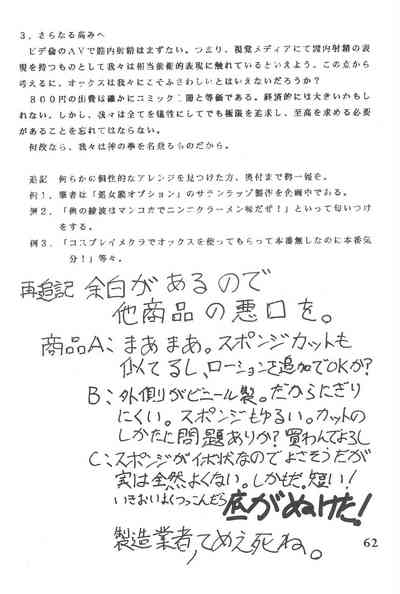 3、さらなる高みへ
ビデ倫のAVで膣内射精はまずない。つまり、視覚メディアにて膣内射精の表
現を持つものとして我々は相当前衛的表現に触れているといえよう、この点から
考えるに、オックスは我々にこそふさわしいとはいえないだろうか?
800円の出費は確かにコミック二冊と等価である。経済的には大きいかもし
れない。しかし、我々は全てを犠牲にしてでも極限を追求し、至高を求める必要
があることを忘れてはならない。
何故なら、我々は神の拳を名乗るものだから。
追記 何らかの個性的なアレンジを見つけた方、奥付まで御一報を。
例1、筆者は「処女膜オプション」のサランラップ製作を企画中である。
例2、「例の綾波はマンコカでニンニクラーメン味だぜ!」といって匂いつけ
をする。
例3、「コスプレイメクラでオックスを使ってもらって本番無しなのに本番気
分!」等々。
再追記 余白があるので
他商品の悪口を。
商品A:まあまあ。スポンジカットも
似てるし、ローションを追加でOKか?
B:外側がビニール製。だからにぎり
にくい。スポンジもゆるい。カットの
しかたに問題ありか?買わんでよろし
C:スポンジがイボ状なのでよさそうだが
実は全然よくない。しかもだ、短い!
いきおいよくつっこんだら底がぬけた!
製造業者、てめえ死ね。
62